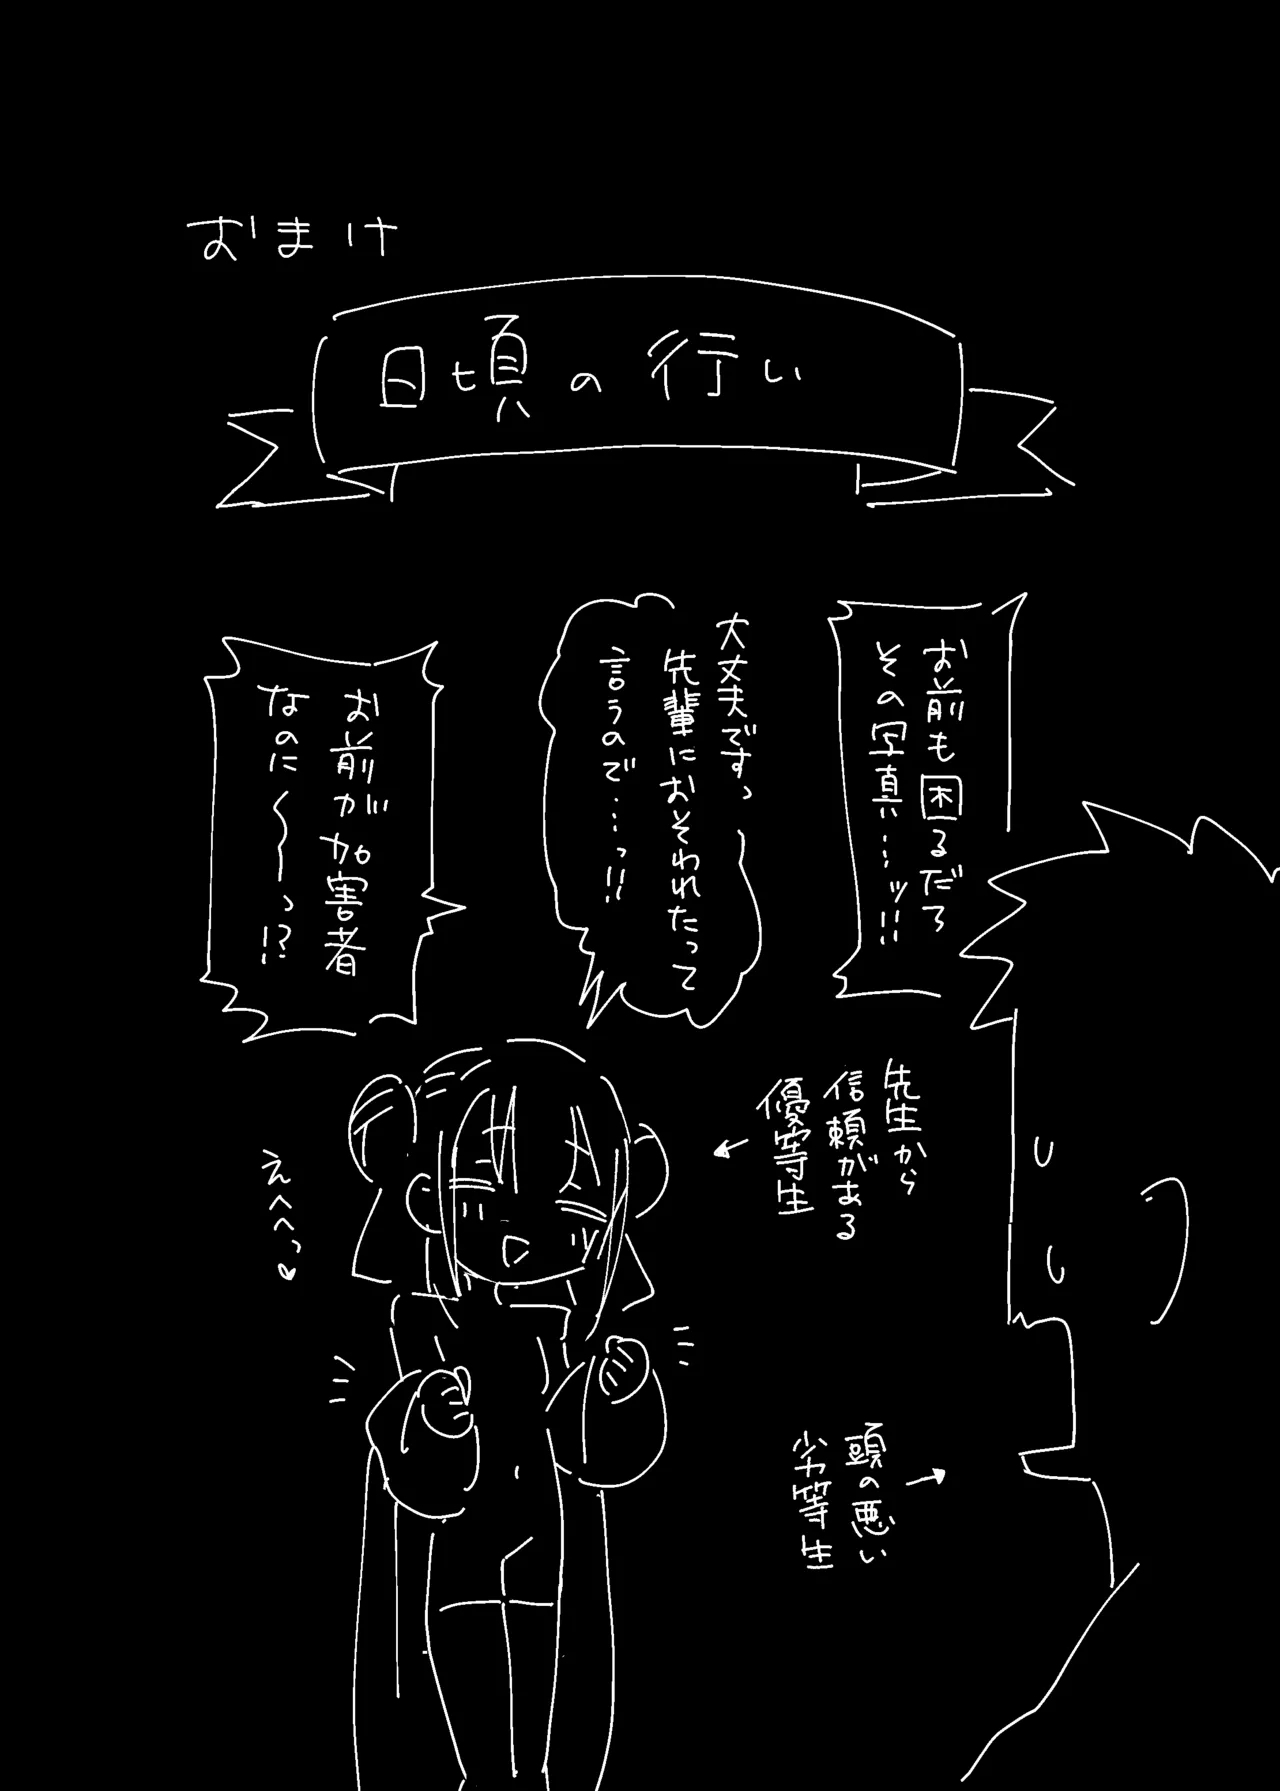 おまけ
日頃の行い
お前も困るだろ
その写真…ッ!!
大丈夫ですっ
先輩におそわれたって
言うので…っ!!
お前が加害者
なのに〜〜っ!?
先生から
信頼がある
優等生
えへへっ♥
頭の悪い
劣等生